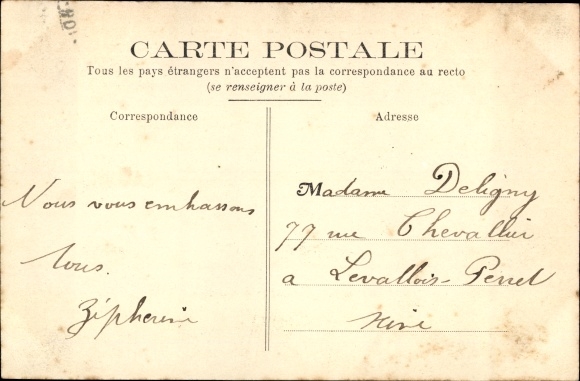 CARTE POSTALE
Tous les pays étrangers n'acceptent pas la correspondance au recto
(se renseigner à la poste)
Correspondance
Adresse
Nous vous embrassons
tous.
Zépherine
Madame Deligny
77 rue Chevallier
a Levallois-Perret
Seine